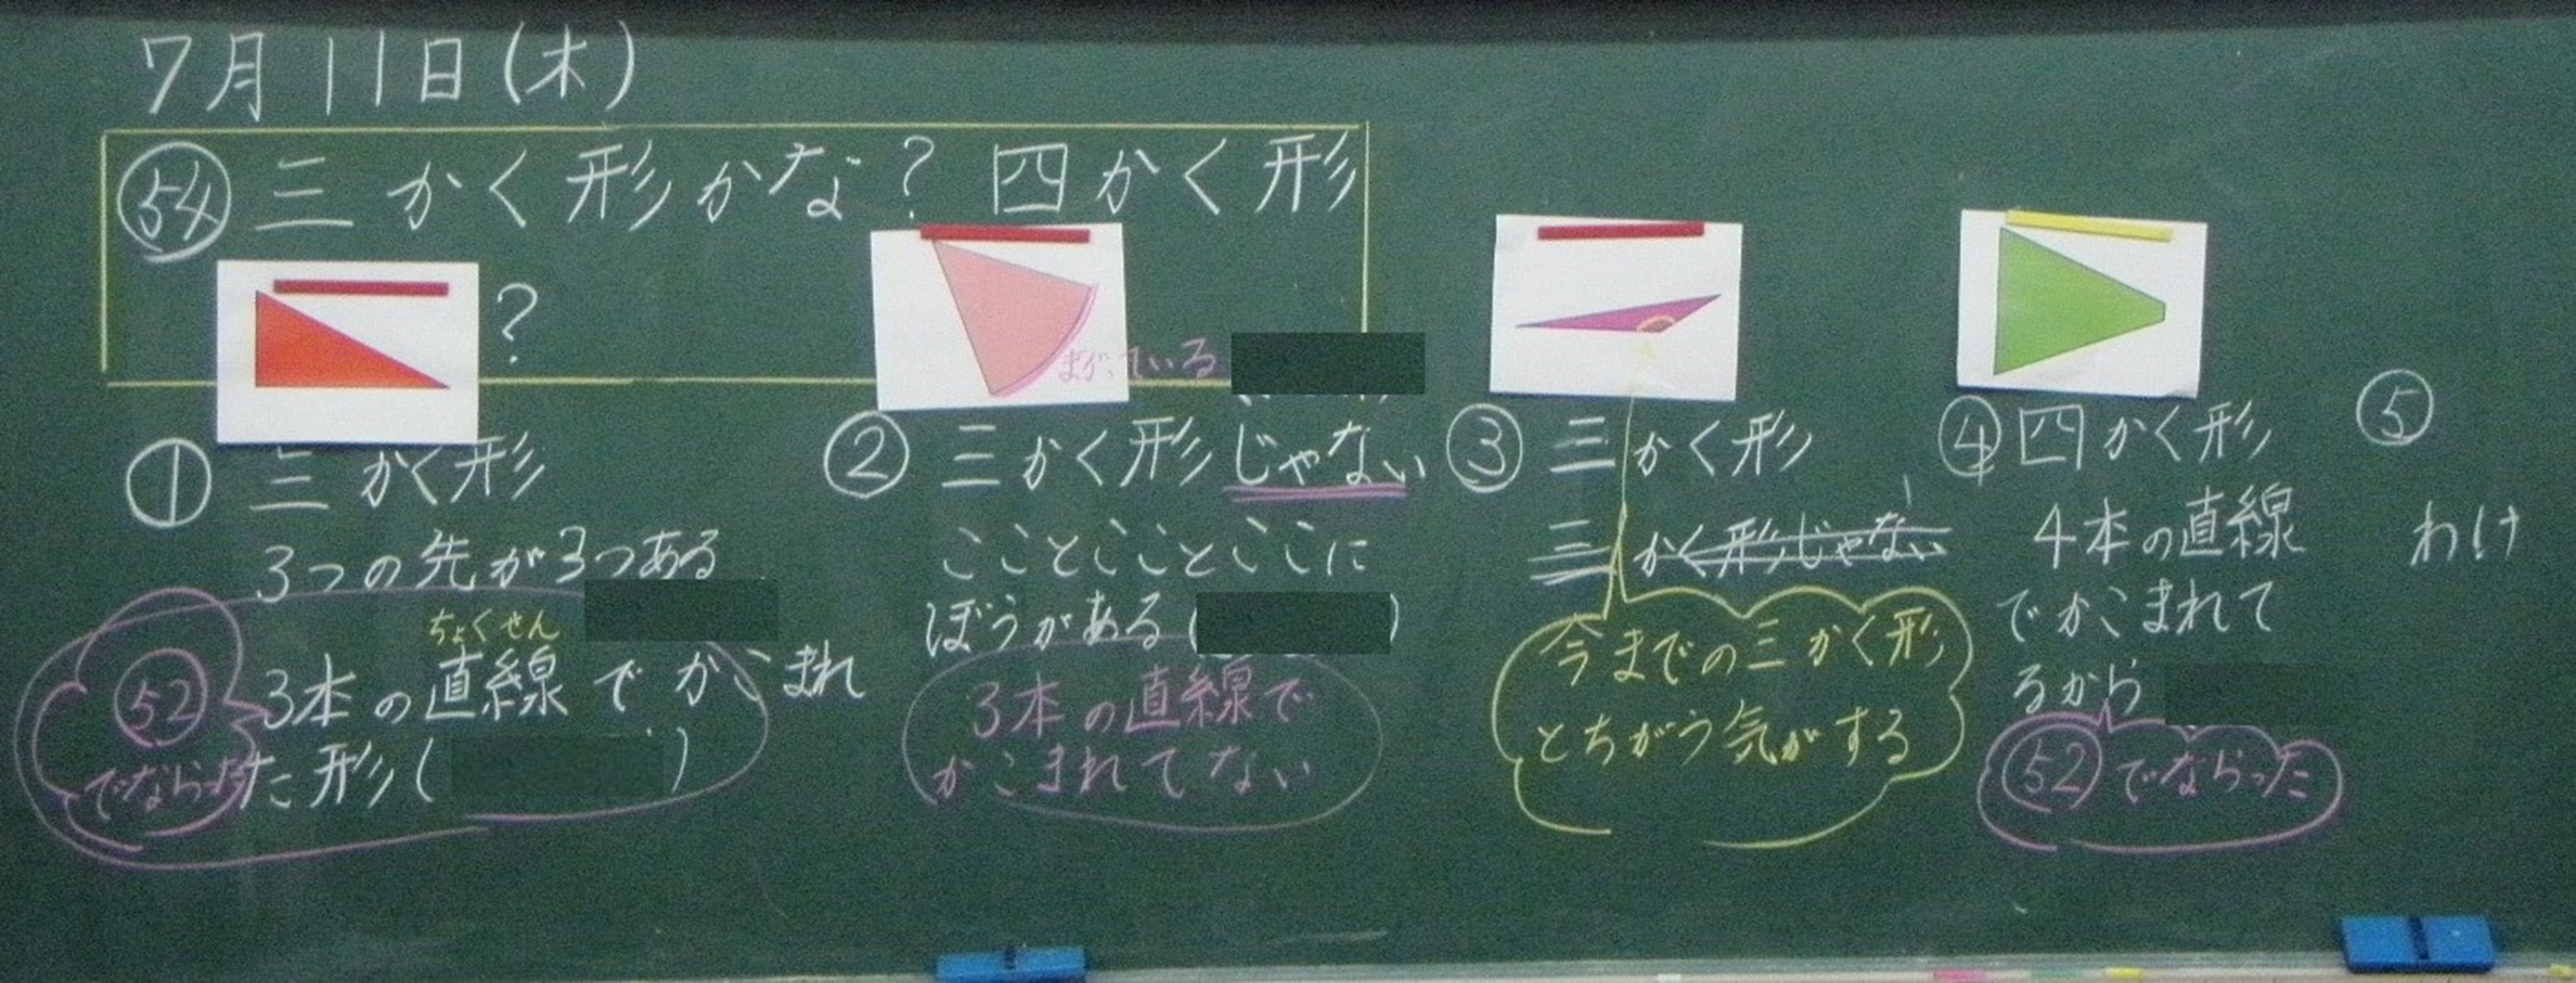 7月11日(木)
54 三かく形かな? 四かく形
?
① 三かく形
3つの先が3つある
ちょくせん
3本の直線でかこまれ
た形( )
52
でならった
まがっている
② 三かく形じゃない
こことこことここに
ぼうがある( )
3本の直線で
かこまれてない
③ 三かく形
三かく形じゃない
今までの三かく形
とちがう気がする
④ 四かく形
4本の直線
でかこまれて
るから
52でならった
⑤
わけ